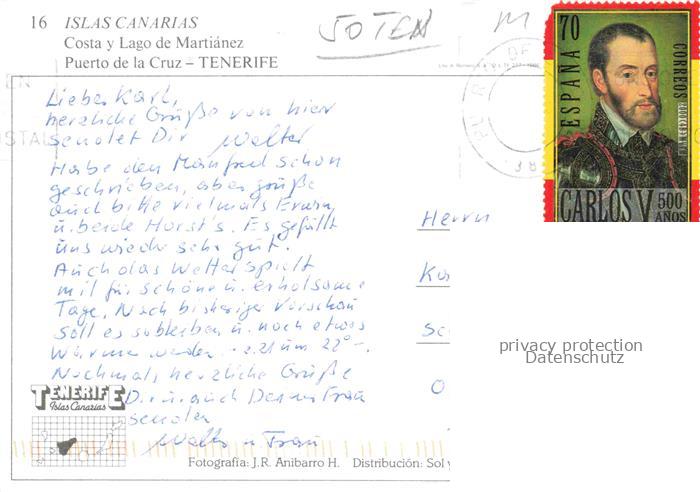 16 ISLAS CANARIAS
Costa y Lago de Martiánez
Puerto de la Cruz – TENERIFE
SOTEN
M
70
ESPAÑA
CORREOS
CARLOS V 500
AÑOS
Lieber Karl,
herzliche Grüße von hier
sendet Dir Walter
Habe den Manfred schon
geschrieben, aber grüße
auch bitte vielmals Erwin,
u. beide Horst's. Es gefällt
uns wieder sehr gut.
Auch das Wetter spielt
mit für schöne u. erholsame
Tage. Nach bisheriger Vorschau
soll es so bleiben u. noch etwas
wärmer werden - z.Zt um 22° -.
Nochmal, herzliche Grüße
Dir u. auch Deiner Frau
senden
Walter u Frau
Herrn
privacy protection
Datenschutz
TENERIFE
Islas Canarias
Fotografía: J.R. Anibarro H. Distribución: Sol y